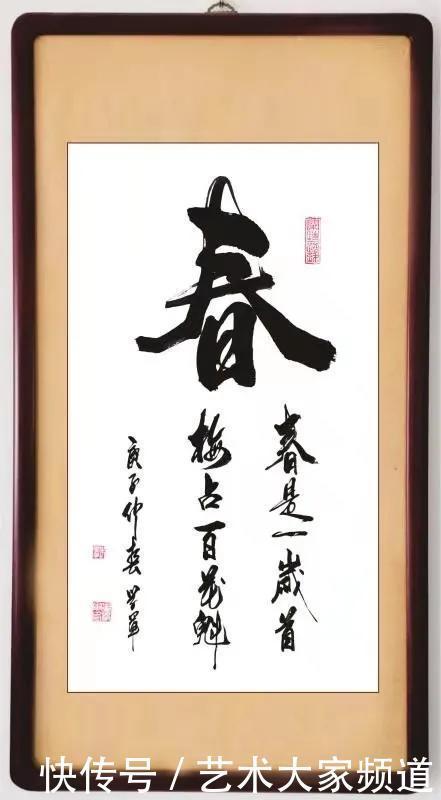 春
春是一歲首
梅占百花魁
庚子仲春
快传号 / 艺术大家频道